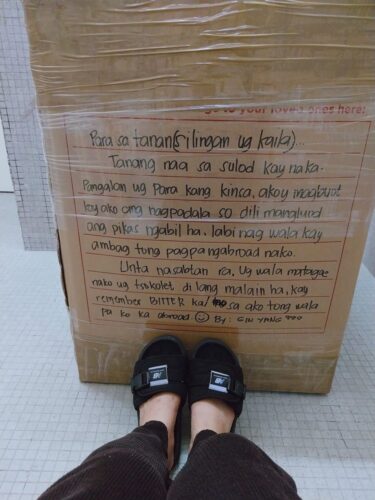 go to your loved ones here:
Para sa tanan (silingan ug kaila)...
Tanang naa sa sulod kay naka-
Pangalan ug para kang kinsa, ako'y magbuot
kay ako ang nagpadala so dili manglund
ang pikas ngabil ha, labi nag wala kay
ambag tung pagpangabroad nako.
Unta nasabtan ra, Ug wala matagae
nako ug tsokolet di lang malain ha, kay
remember BITTER ka/ sa ako tong wala
pa ko ka abroad. ☺ By: GIN YANG